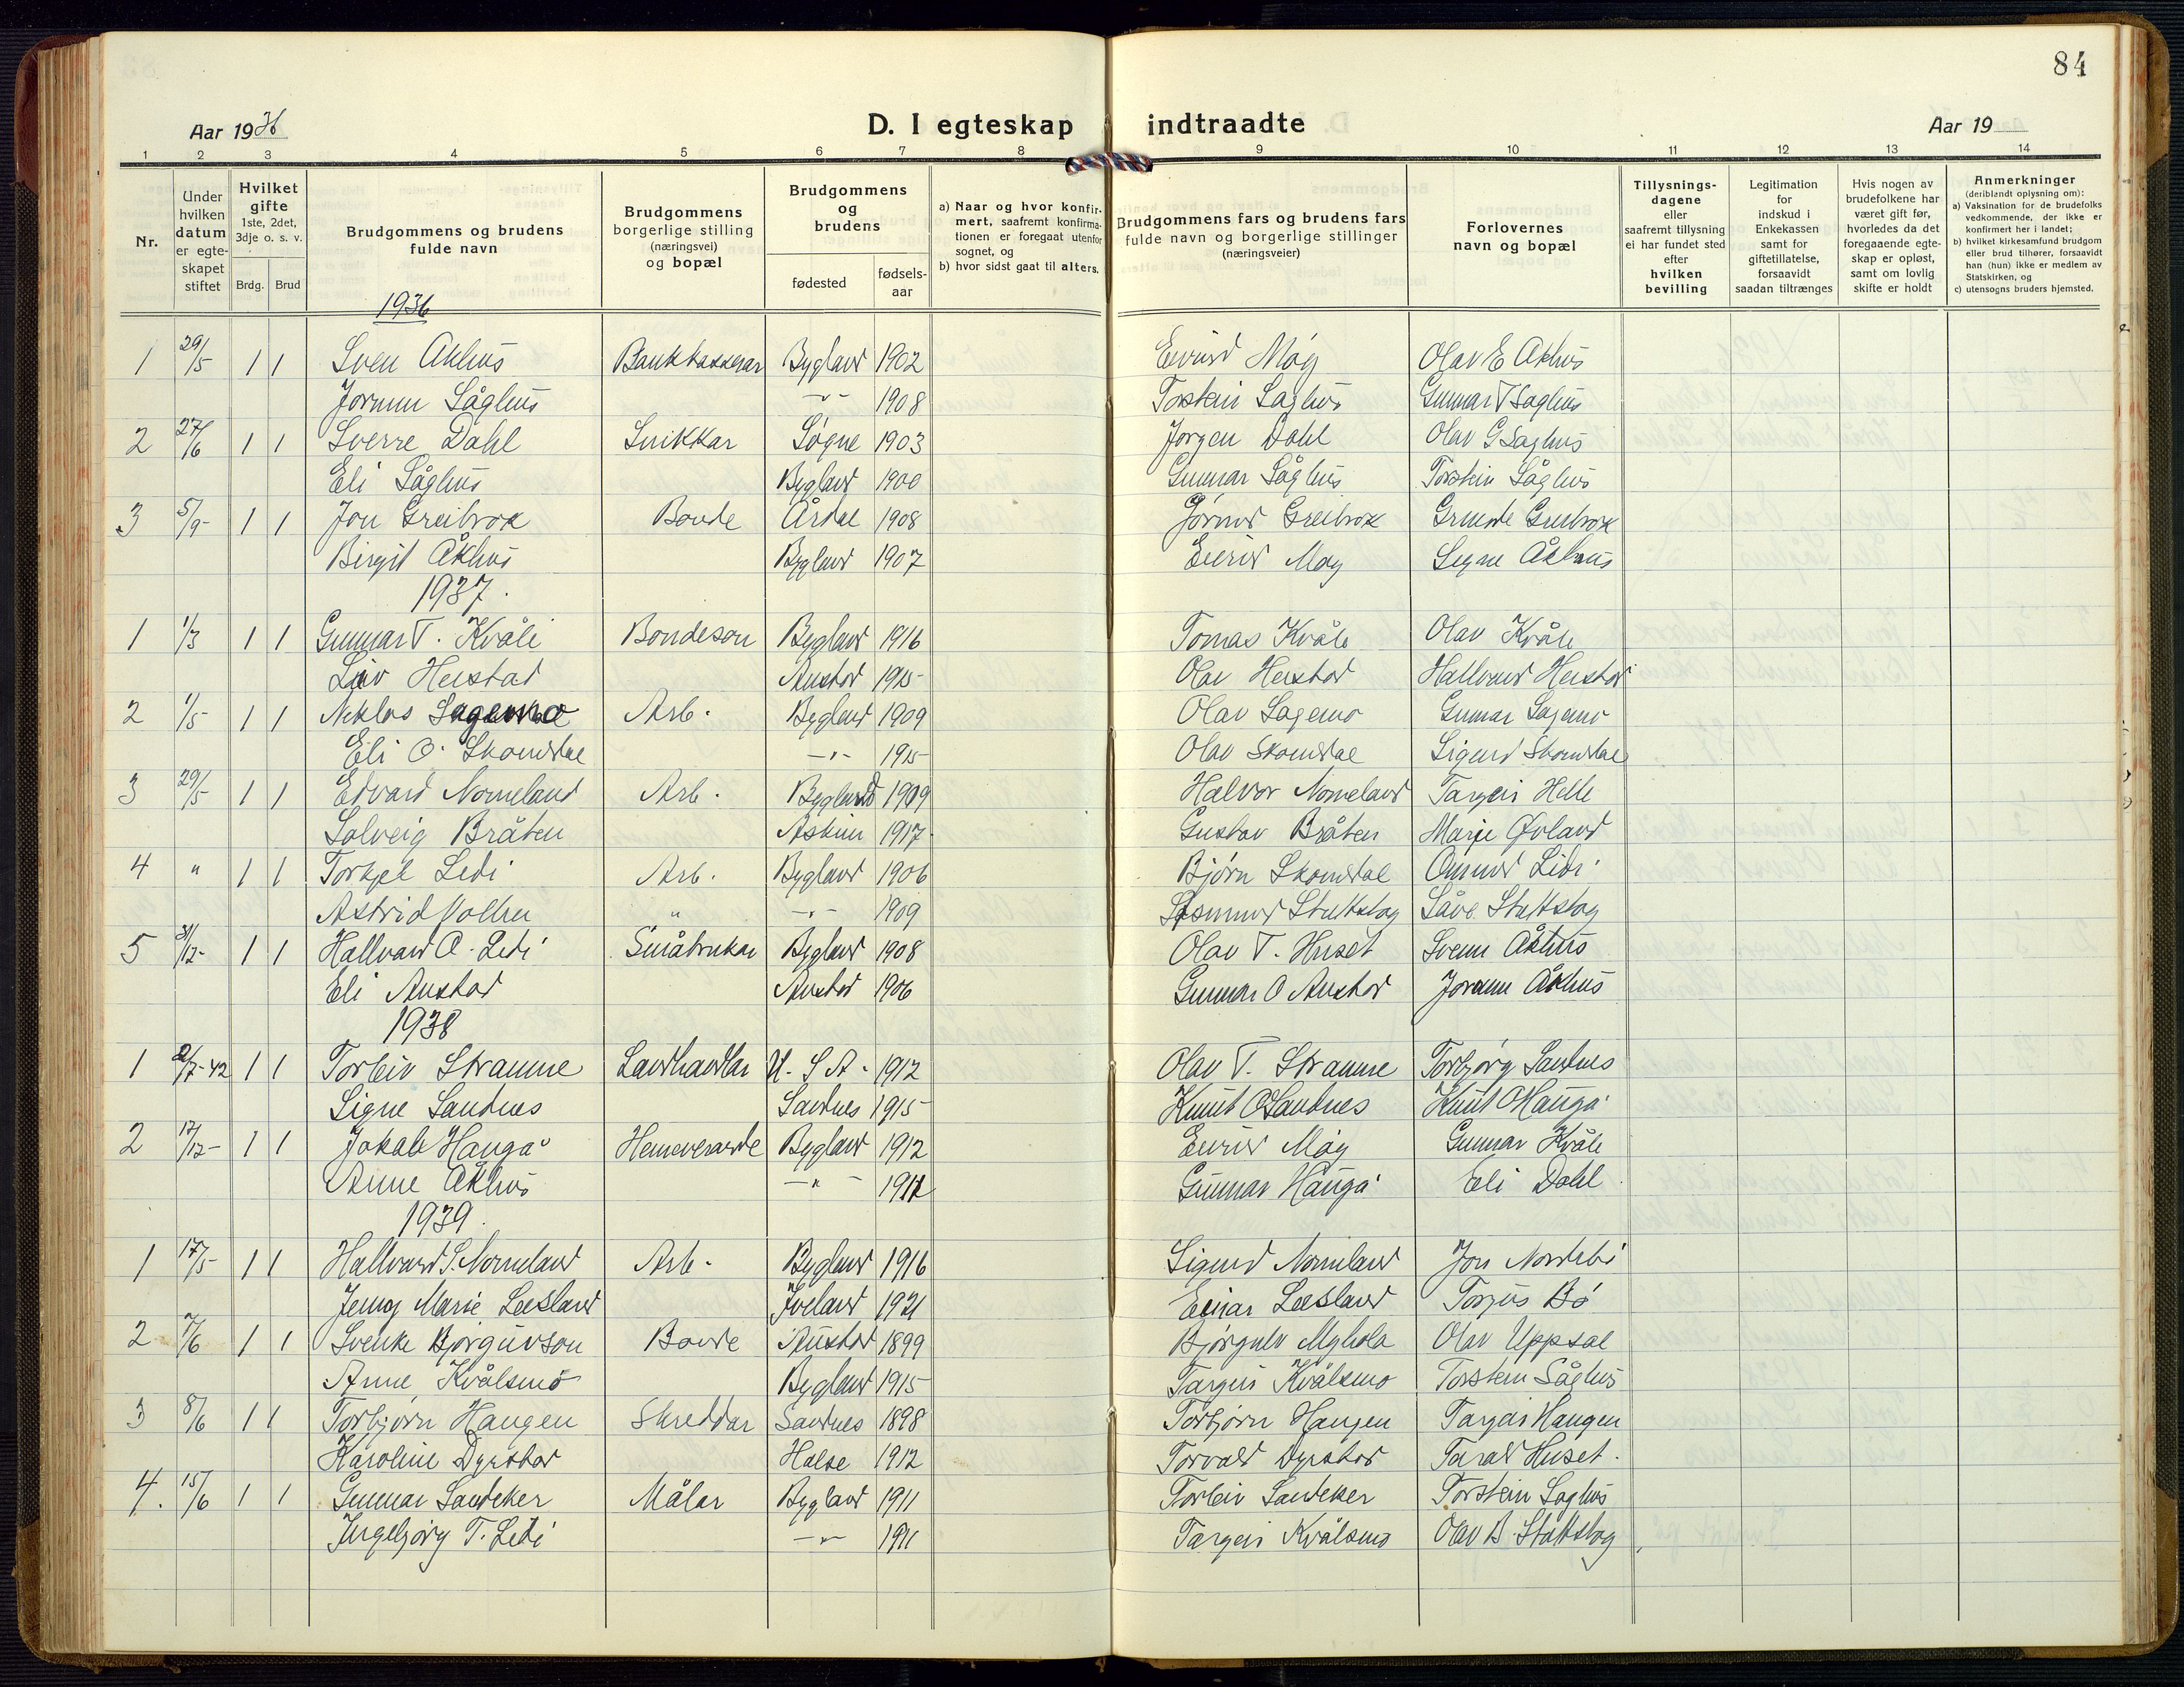 84
Aar 1936
D. I egteskap indtraadte
Aar 19
1 2 3 4 5 6 7 8 9 10 11 12 13 14
Nr.
Under hvilken datum er egteskapet stiftet
Hvilket gifte 1ste, 2det, 3dje o. s. v.
Brdg. Brud
Brudgommens og brudens fulde navn
Brudgommens borgerlige stilling (næringsvei) og bopæl
Brudgommens og brudens
fødested
fødselsaar
a) Naar og hvor konfirmert, saafremt konfirmationen er foregaat utenfor sognet, og
b) hvor sidst gaat til alters.
Brudgommens fars og brudens fars fulde navn og borgerlige stillinger (næringsveier)
Forlovernes navn og bopæl
Tillysningsdagene eller saafremt tillysning ei har fundet sted efter hvilken bevilling
Legitimation for indskud i Enkekassen samt for giftetillatelse, forsaavidt saadan tiltrænges
Hvis nogen av brudefolkene har været gift før, hvorledes da det foregaaende egteskap er opløst, samt om lovlig skifte er holdt
Anmerkninger (deriblandt oplysning om):
a) Vaksination for de brudefolks vedkommende, der ikke er konfirmert her i landet;
b) hvilket kirkesamfund brudgom eller brud tilhører, forsaavidt han (hun) ikke er medlem av Statskirken, og
c) utensogns bruders hjemsted.
1936
1 29/5 1 1 Sven Åkhus Bankkasserar Bygland 1902 Eivind Moy Olav E Åkhus
Jorunn Såghus -"- 1908 Torstein Saghus Gunnar T Saghus
2 27/6 1 1 Sverre Dahl Snikkar Søgne 1903 Jørgen Dahl Olav G Saghus
Eli Såghus Bygland 1900 Gunnar Såghus Torstein Såghus
3 5/9- 1 1 Jon Greibrok Bonde Årdal 1908 Greibrok Greibrok
Birgit Åkhus Bygland 1907 Moy Signe Åkhus
1937.
1 1/3 1 1 Gunnar T. Kvåle Bondeson Bygland 1916 Tomas Kvåle Olav Kvåle
Liv Herstad Austad 1915 Olav Herstad Hallvard Herstad
2 1/5 1 1 Niklos Sagemo Arb. Bygland 1909 Olav Sagemo Gunnar Sagemo
Eli O. Skomdal -"- 1915 Olav Skomdal Sigurd Skomdal
3 29/5 1 1 Edvard Nomeland Arb. Bygland 1909 Halvor Nomeland Targei Helle
Solveig Bråten Askim 1917 Gustav Bråten Marie Øvland
4 " 1 1 Torkjel Lidi Arb. Bygland 1906 Bjørn Skomdal Lidi
Astrid " -"- 1909 Stuttstog Såve Stuttstog
5 31/12- 1 1 Hallvard O. Lidi Småbrukar Bygland 1908 Olav T. Huset Svenn Åkhus
Eli Austad Austad 1906 Gunnar O Austad Jorunn Åkhus
1938
1 2/7-42 1 1 Torleiv Straume Landhandlar U.S.A. 1912 Olav T. Straume Torbjørg Sandnes
Signe Sandnes Sandnes 1915 Knut O Sandnes Knut O Haugå
2 17/12- 1 1 Jakob Haugå Heimeverande Bygland 1912 Moy Gunnar Kvåle
Anne Åkhus -"- 1912 Gunnar Haugå Eli Dahl
1939.
1 17/5- 1 1 Hallvard S. Nomeland Arb. Bygland 1916 Sigurd Nomeland Jon Nordebø
Jenny Marie Leesland Iveland 1921 Einar Leesland Torjus Bø
2 7/6 1 1 Svenke Bjørguvson Bonde Austad 1899 Bjørgulv Olav Uppsal
Anne Kvålsmo Bygland 1915 Targei Kvålsmo Torstein Såghus
3 8/6 1 1 Torbjørn Haugen Skreddar Sandnes 1898 Torbjørn Haugen Targei Haugen
Karoline Dyrstad Halse 1912 Torvald Dyrstad Tarald Huset.
4. 15/6 1 1 Gunnar Sandeker Målar Bygland 1911 Torleiv Sandeker Torstein Saghus
Ingebjørg T. Lidi -"- 1911 Targei Kvålsmo Olav B. Stuttstog